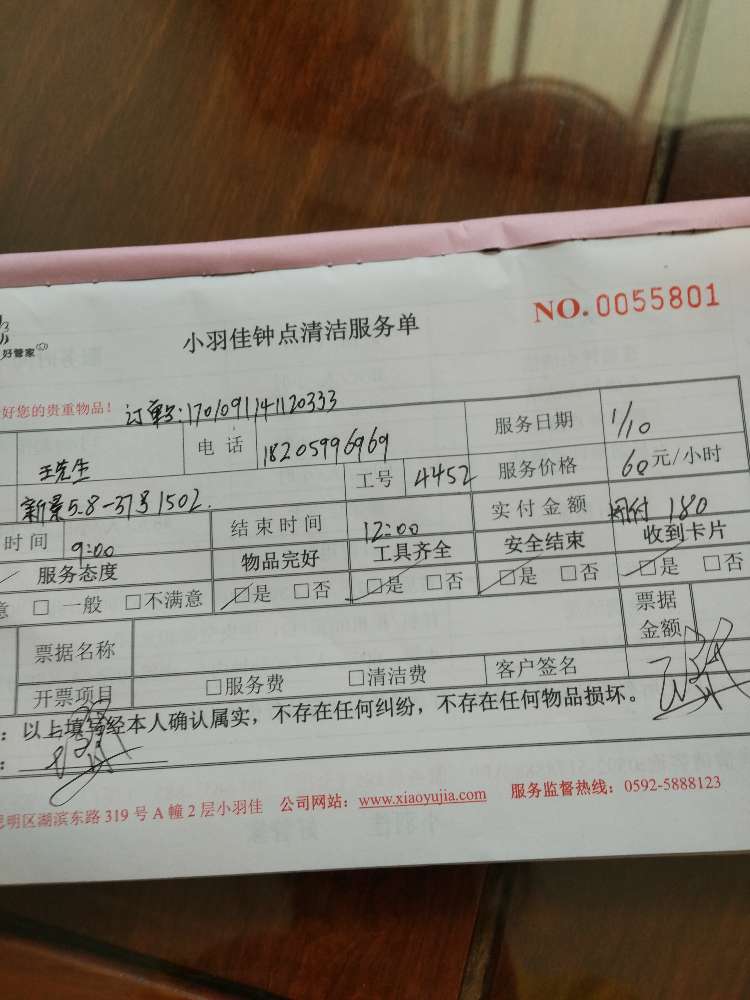 NO.0055801
小羽佳钟点清洁服务单
好管家
好您的贵重物品! 订单号:1701091141120333
王先生 电话 18205996969 服务日期 1/10
新景5.8-37号1502. 工号 4452 服务价格 60元/小时
时间 9:00 结束时间 12:00 实付金额 180
服务态度 物品完好 工具齐全 安全结束 收到卡片
意 □一般 □不满意 □是 □否 □是 □否 □是 □否 □是 □否
票据名称 票据金额
开票项目 □服务费 □清洁费 客户签名
:以上填写经本人确认属实,不存在任何纠纷,不存在任何物品损坏。
:
思明区湖滨东路319号A幢2层小羽佳 公司网站:www.xiaoyujia.com 服务监督热线:0592-5888123